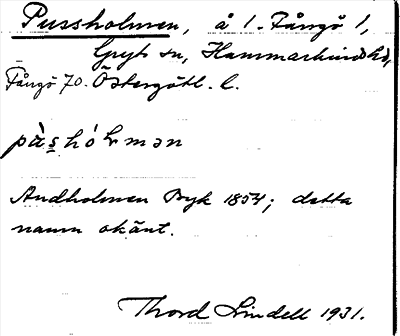 Pussholmen, å 1. Fångö 1,
Gryts sn, Hammarkinds hd,
Fångö 70. Östergötl. l.
pàshólmən
Andholmen Byk 1854; detta
namn okänt.
Thord Lindell 1931.